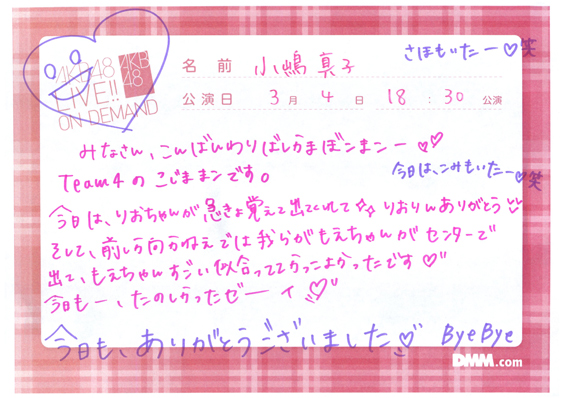 さほもいたー♡笑
AKB48
LIVE!!
ON DEMAND
AKB
48
名前 小嶋真子
公演日 3月 4日 18:30 公演
みなさん、こんばんわりばしかまぼこまこー♡♡
Team4の こじままこです。
今日は、こみもいたー♡笑
今日は、りおちゃんが急きょ覚えて出てくれて☆☆ りおりんありがとう
そして、前しか向かねえでは我らがもえちゃんがセンターで
出て、もえちゃんすごい似合っててかっこよかったです♡
今日もー、たのしかったぜーイ♡
今日も、ありがとうございました♡ ByeBye
DMM.com